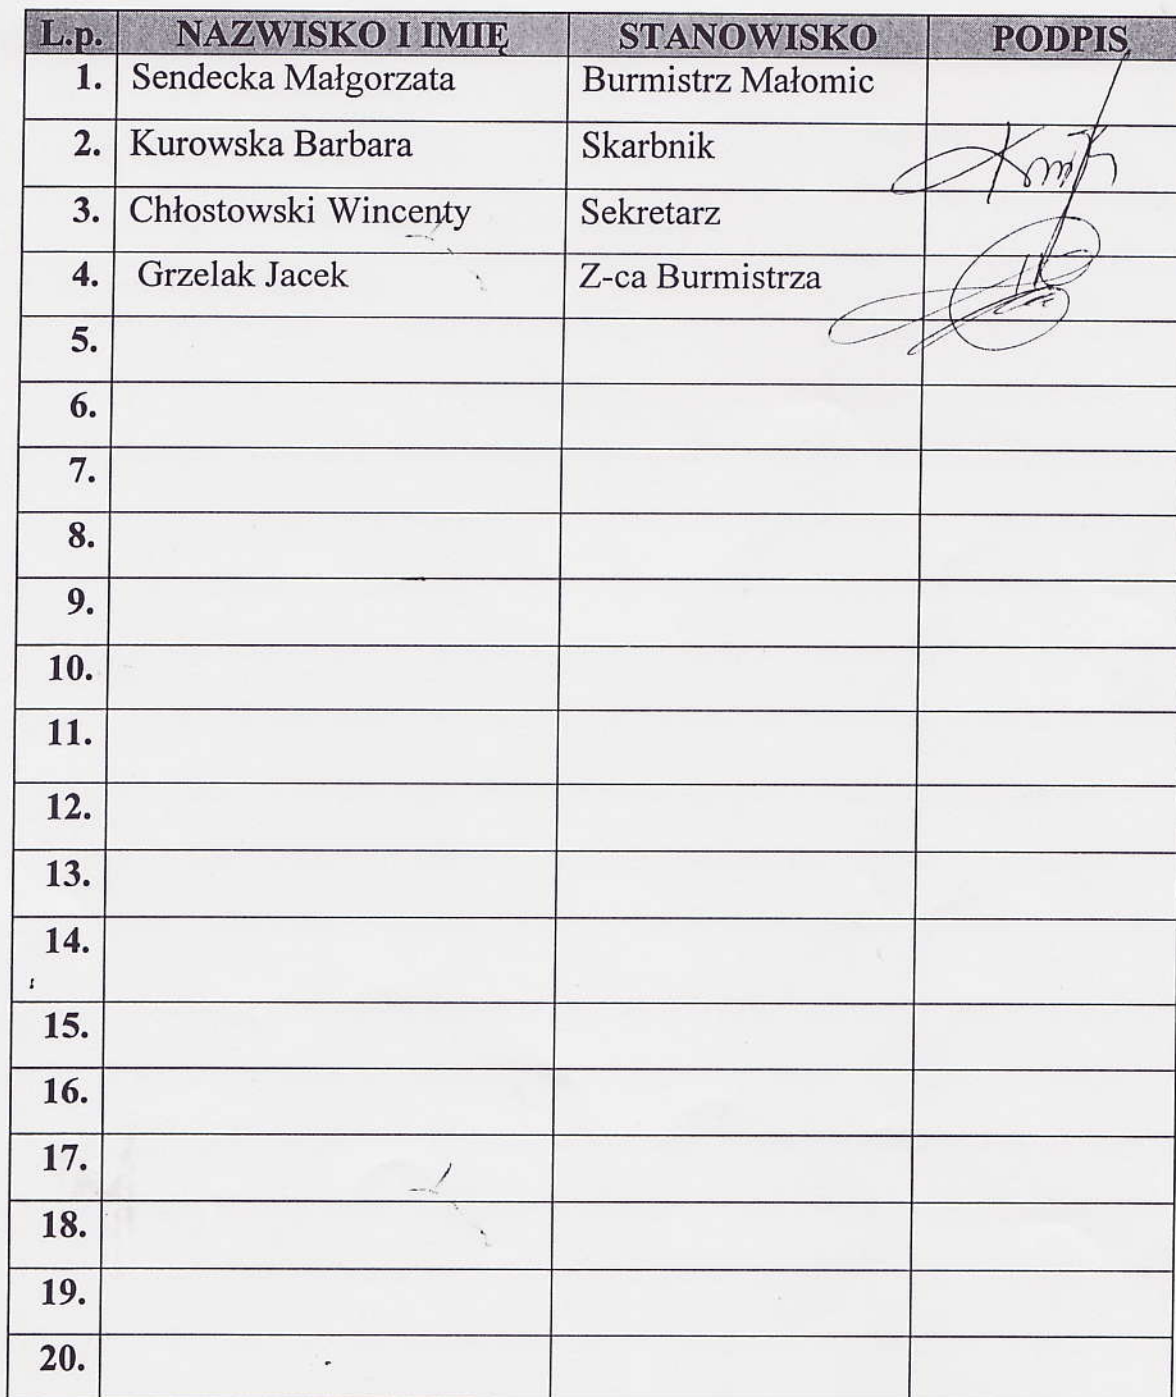 L.p. NAZWISKO I IMIĘ STANOWISKO PODPIS
1. Sendecka Małgorzata Burmistrz Małomic
2. Kurowska Barbara Skarbnik
3. Chłostowski Wincenty Sekretarz
4. Grzelak Jacek Z-ca Burmistrza
5.
6.
7.
8.
9.
10.
11.
12.
13.
14.
15.
16.
17.
18.
19.
20.